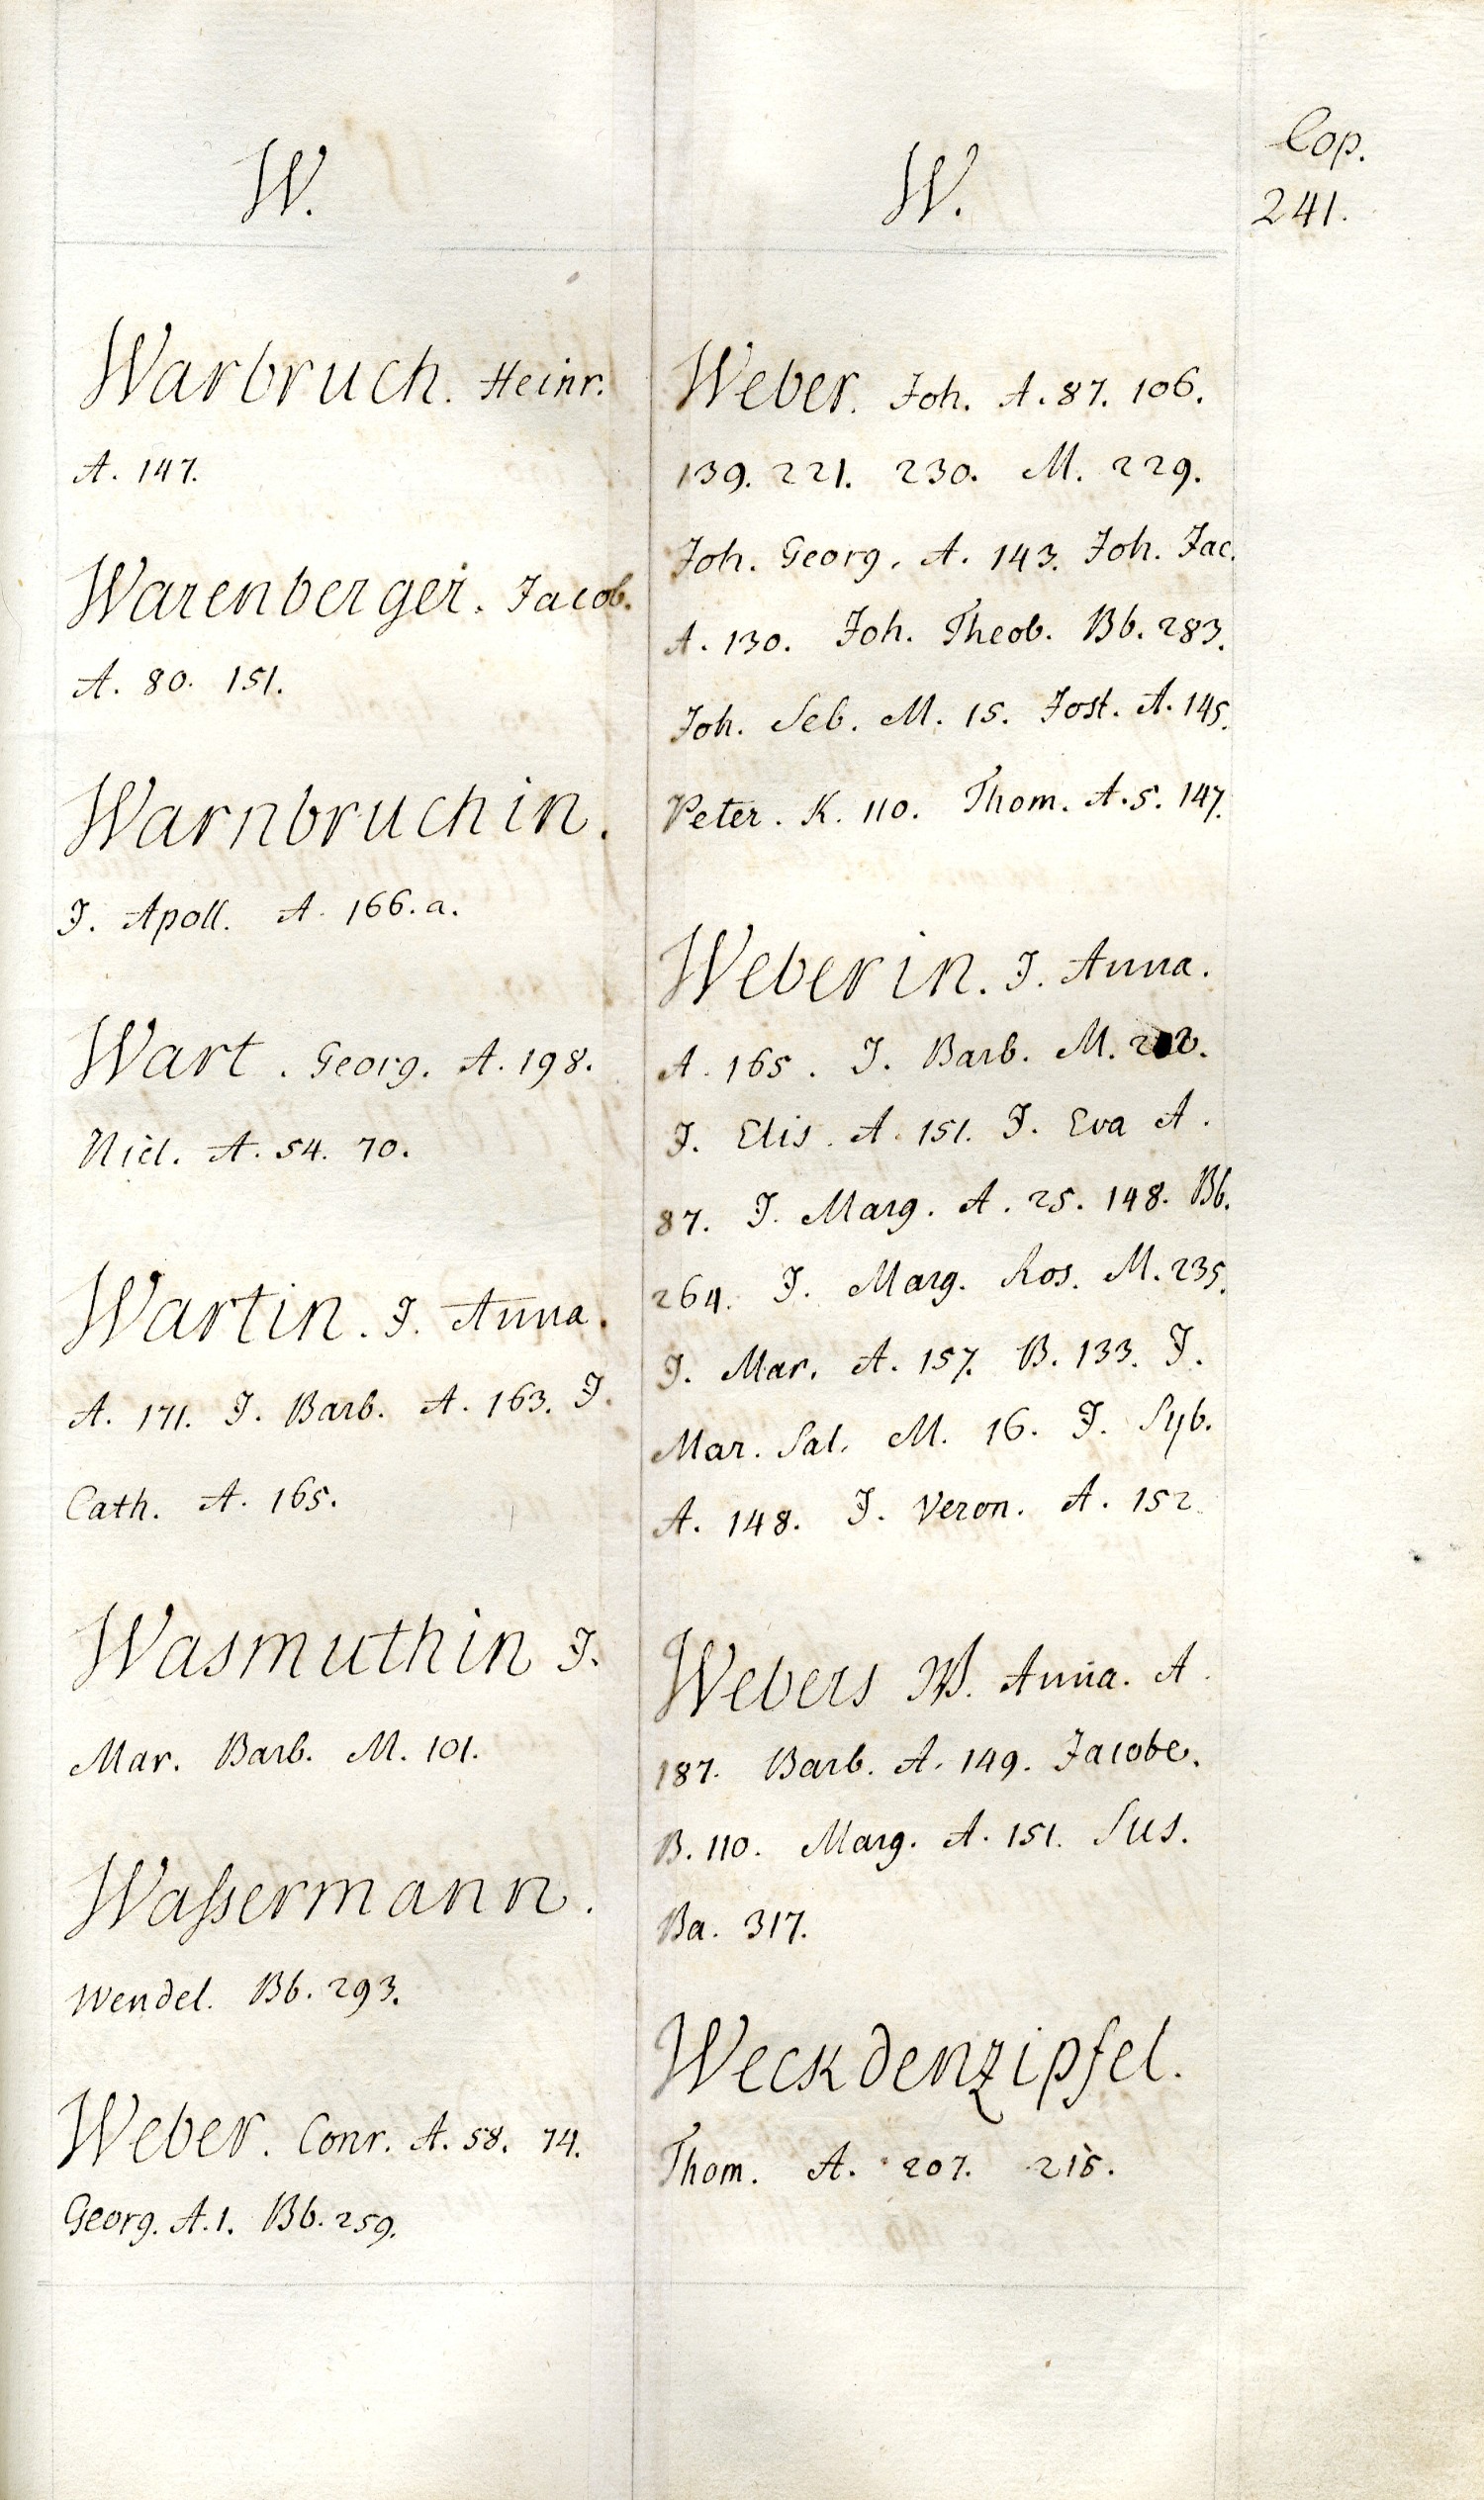 Cop.
241.
W.
Warbruch. Heinr.
A. 147.
Warenberger. Jacob.
A. 80. 151.
Warnbruchin.
J. Apoll. A. 166.a.
Wart. Georg. A. 198.
Nicl. A. 54. 70.
Wartin. J. Anna.
A. 171. J. Barb. A. 163. J.
Cath. A. 165.
Wasmuthin J.
Mar. Barb. M. 101.
Waſsermann.
Wendel. Bb. 293.
Weber. Conr. A. 58. 74.
Georg. A. 1. Bb. 259.
W.
Weber. Joh. A. 87. 106.
139. 221. 230. M. 229.
Joh. Georg. A. 143. Joh. Jac.
A. 130. Joh. Theob. Bb. 283.
Joh. Seb. M. 15. Jost. A. 145.
Peter. K. 110. Thom. A. 5. 147.
Weberin. J. Anna.
A. 165. J. Barb. M.
J. Elis. A. 151. J. Eva A.
87. J. Marg. A. 25. 148. Bb.
264. J. Marg. Ros. M. 235.
J. Mar. A. 157. B. 133. J.
Mar. Sal. M. 16. J. Syb.
A. 148. J. Veron. A. 152
Webers W. Anna. A.
187. Barb. A. 149. Jacobe.
B. 110. Marg. A. 151. Sus.
Ba. 317.
Weckdenzipfel.
Thom. A. 207. 215.